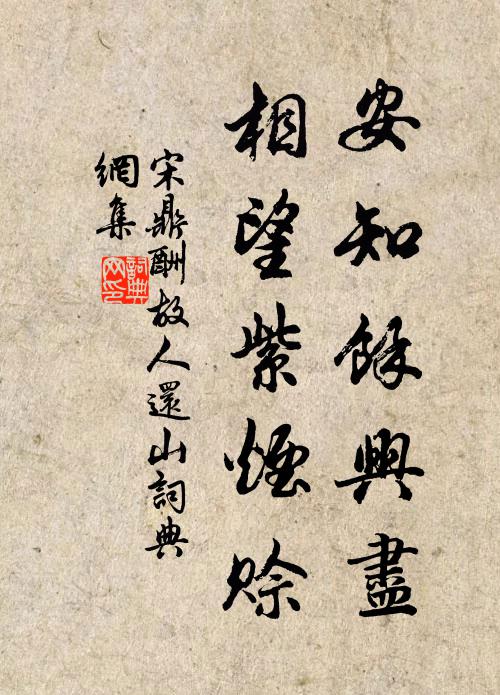 安知餘興盡
相望紫煙賒
宋鼎酬故人還山詞典
網集
詞典
网印